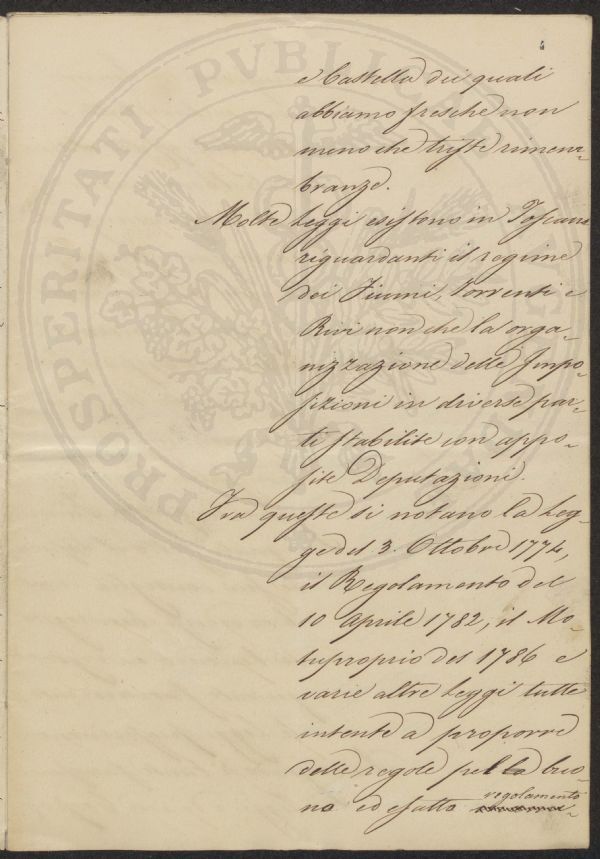 4
e Castella dei quali
abbiamo fresche non
meno che triste rimem-
branze.
Molte Leggi esistono in Toscana
riguardanti il regime
dei Fiumi, Torrenti e
Rivi non che la orga-
nizzazione delle Impo-
sizioni in diverse par-
ti stabilite con appo-
site Deputazioni.
Tra queste si notano la Leg-
ge del 3. Ottobre 1774,
il Regolamento del
10 Aprile 1782, il Mo-
tuproprio del 1786 e
varie altre Leggi tutte
intente a proporre
delle regole pella buo-
na ed esatta regolamento
PROSPERITATI PVBLIC